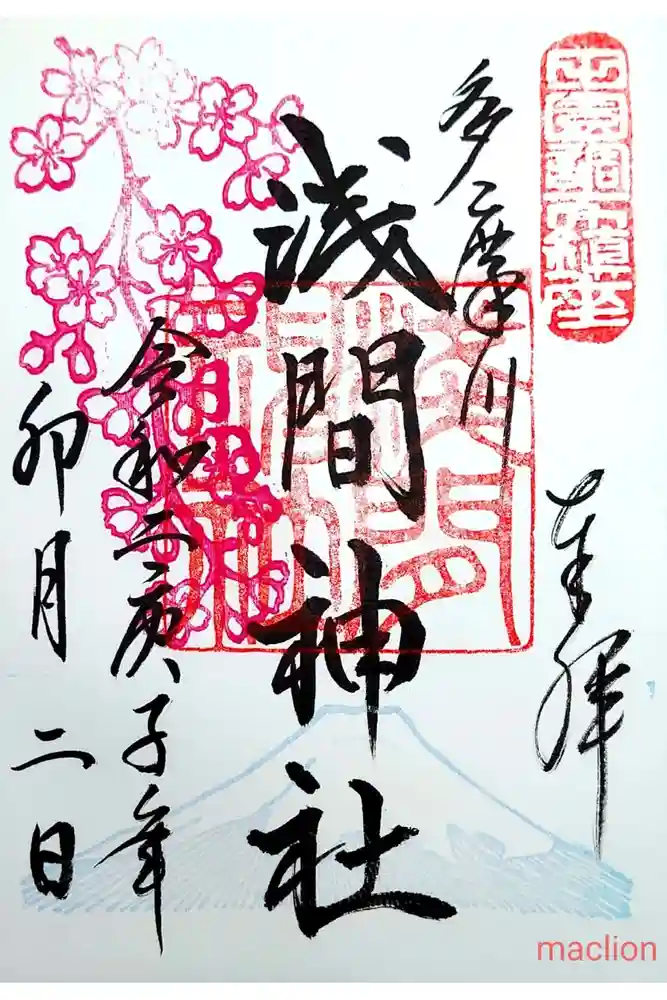 奉拝
多摩川
浅間神社
令和二庚子年
卯月二日
maclion